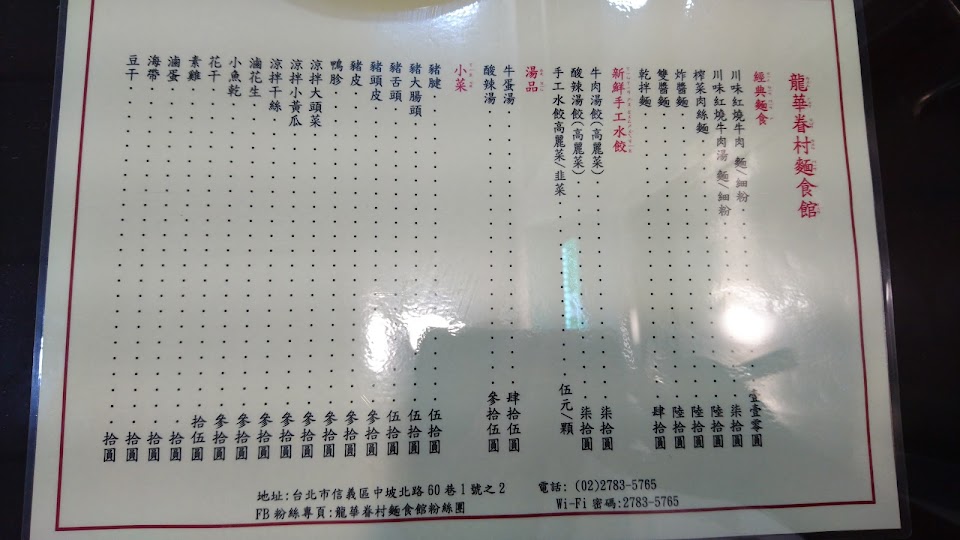 龍華眷村麵食館
經典麵食
川味紅燒牛肉 麵/細粉 壹壹零圓
川味紅燒牛肉湯 麵/細粉 柒拾圓
榨菜肉絲麵 陸拾圓
炸醬麵 陸拾圓
雙醬麵 陸拾圓
乾拌麵 肆拾圓
新鮮手工水餃
牛肉湯餃(高麗菜) 柒拾圓
酸辣湯餃(高麗菜) 柒拾圓
手工水餃高麗菜/韭菜 伍元/顆
湯品
牛蛋湯 肆拾伍圓
酸辣湯 參拾伍圓
小菜
豬腱 伍拾圓
豬大腸頭 伍拾圓
豬舌頭 伍拾圓
豬頭皮 參拾圓
豬皮 參拾圓
鴨胗 參拾圓
涼拌大頭菜 參拾圓
涼拌小黃瓜 參拾圓
涼拌干絲 參拾圓
滷花生 參拾圓
小魚乾 參拾圓
花干 拾伍圓
素雞 拾圓
滷蛋 拾圓
海帶 拾圓
豆干 拾圓
地址:台北市信義區中坡北路60巷1號之2 電話: (02)2783-5765
FB粉絲專頁:龍華眷村麵食館粉絲團 Wi-Fi密碼:2783-5765